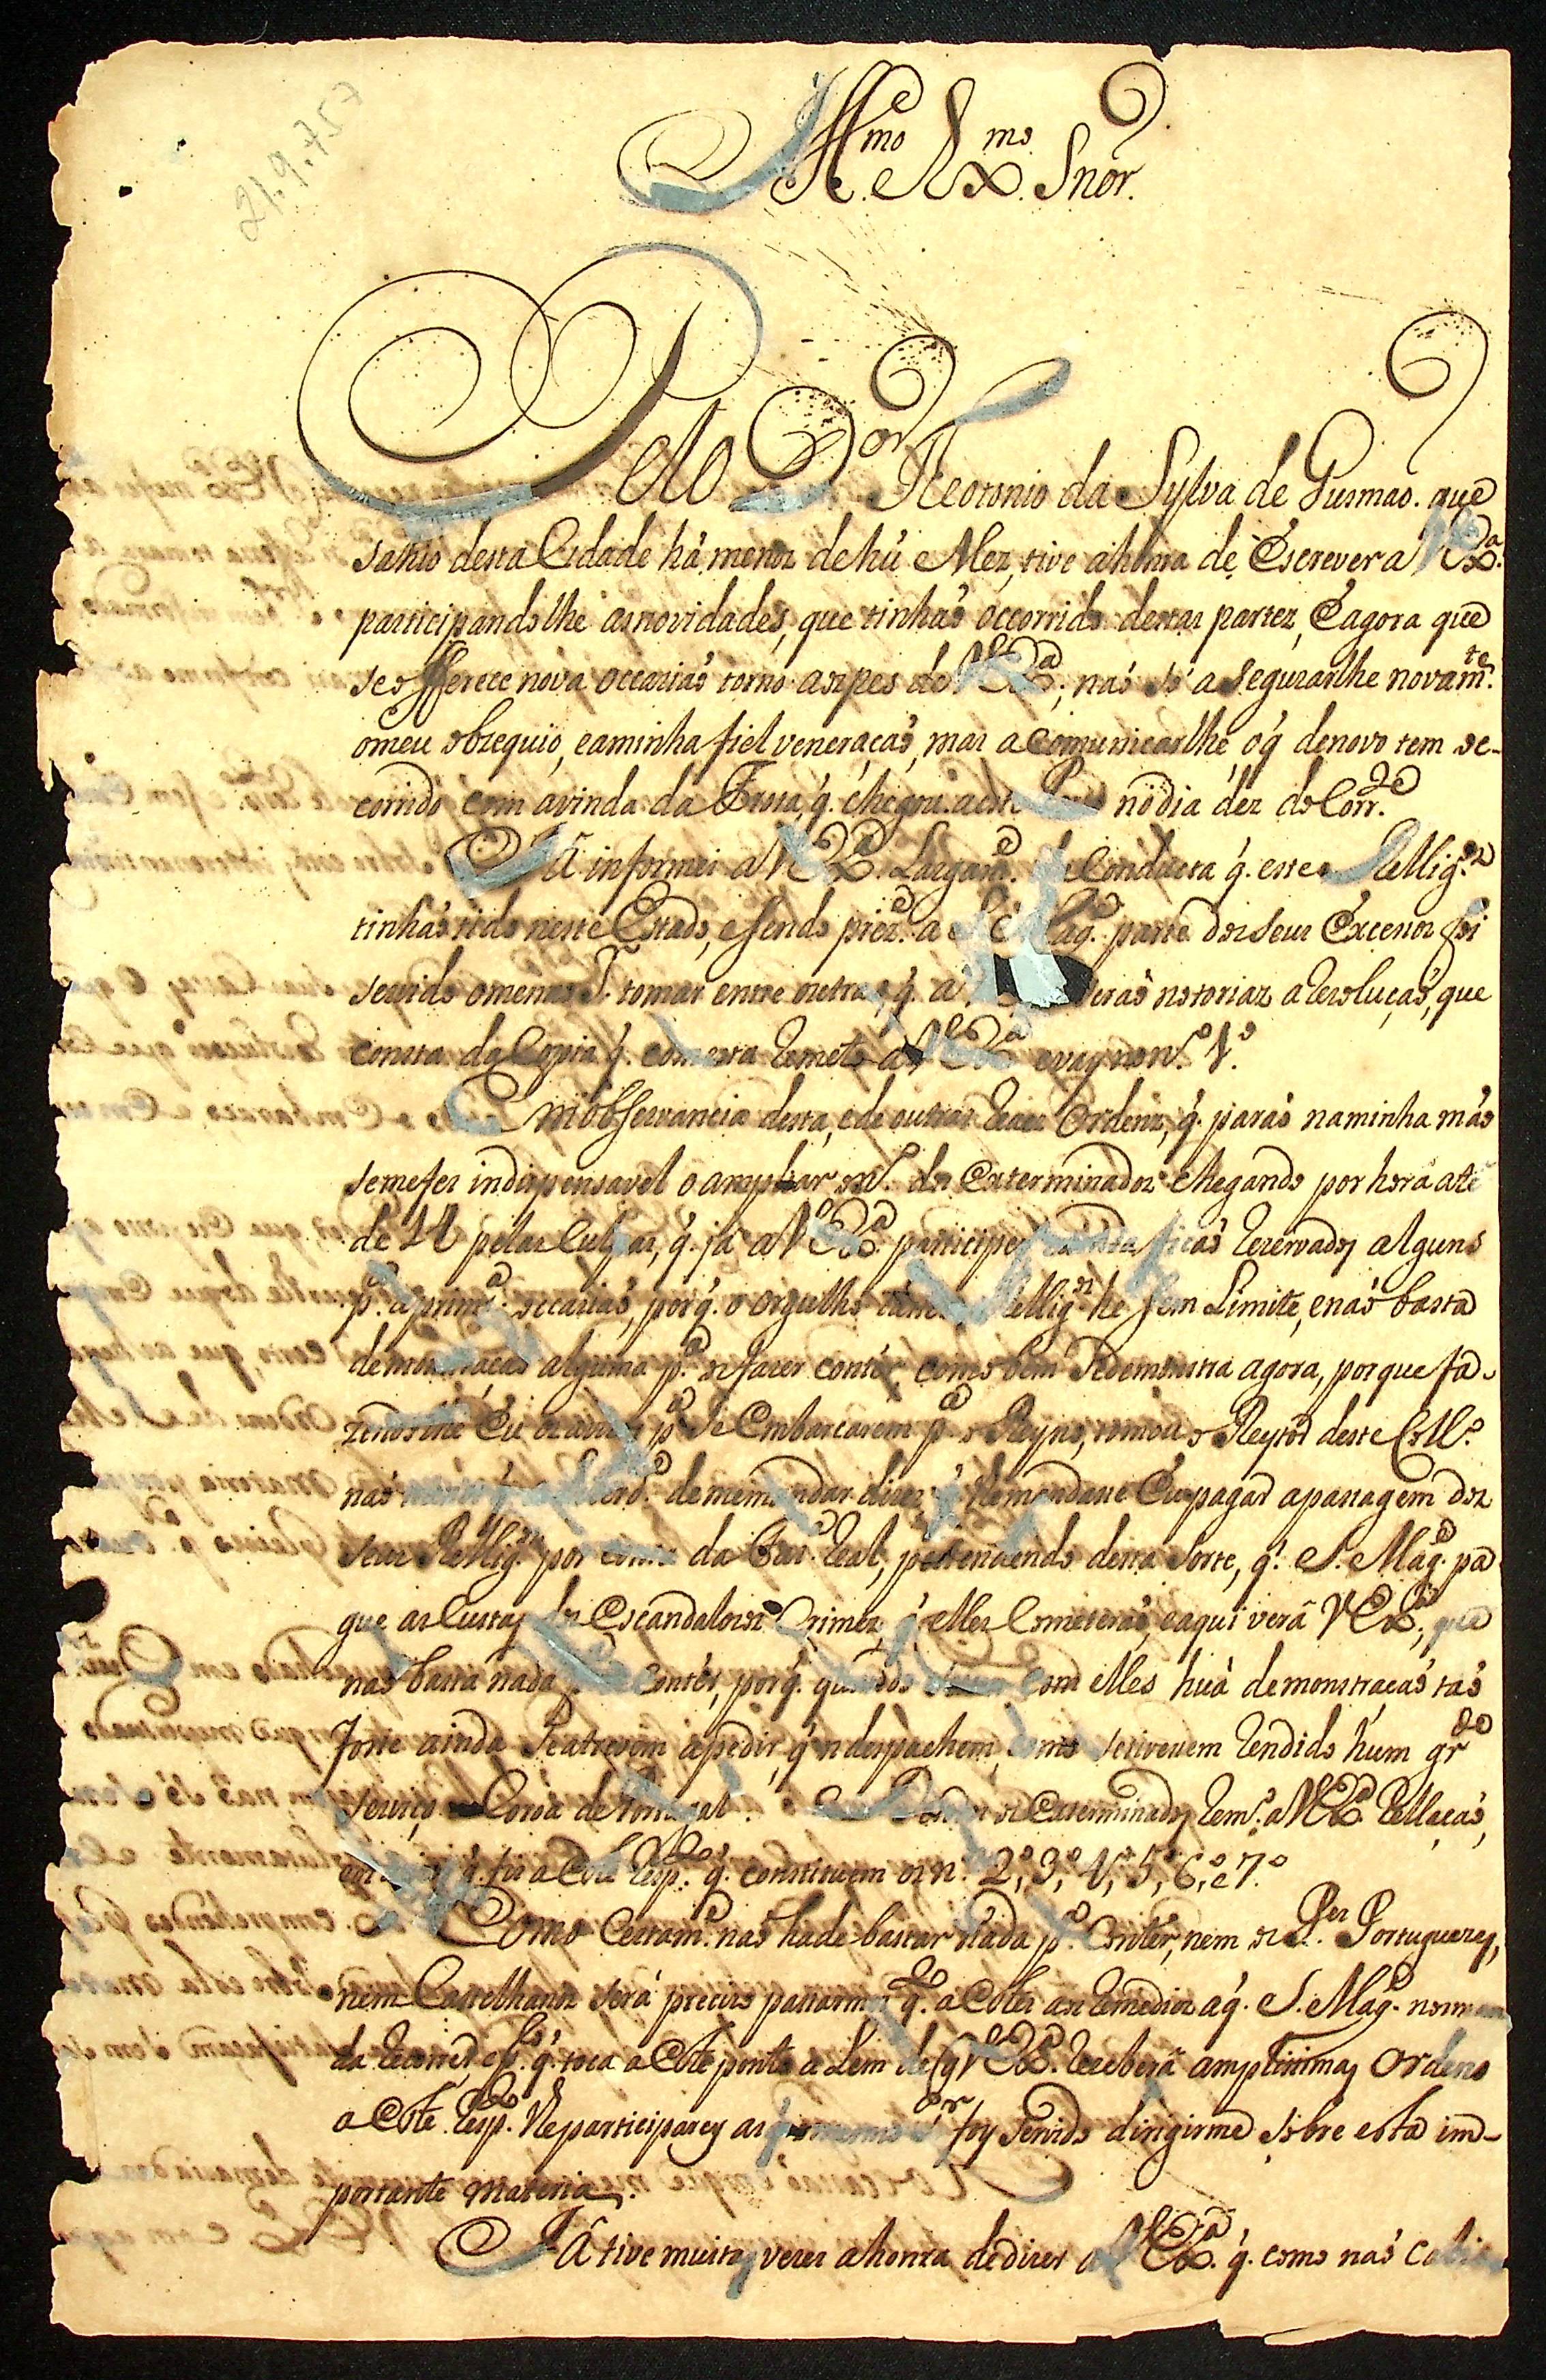 21.9.757
Ill.mo e Ex.mo Snõr.
Pelo D.or Theotonio da Sylva de Gusmaõ. que
sahio desta Cidade há menos de hũ Mez, tive a honra de Escrever a V Ex.a
participandolhe as novidades, que tinhaõ occorrido destas partes, E agora que
se offerece nova occasiaõ torno aos pes de V Ex.a, naõ só a Segurarlhe novam.te
o meu obzequio, e a minha fiel veneraçaõ, mas a Comunicarlhe, o q̃ de novo tem oc-
corrido com a vinda da Frota, q̃. chegou a este no dia dez do Corr.de
Já informei a V Ex.a Largam.e da Conducta q̃. estes Rellig.os
tinhaõ tido neste Estado, e sendo prez.e a S. Mag.e parte dos seus Excessos foi
servido o mesmo S.r tomar entre outras, q̃. a seraõ notorias a rezoluçaõ, que
consta da Copia q̃. com esta remeto a V Ex.a e vay no N.o 1.o
Em observancia desta, e de outras reaes Ordens, q̃. paraõ na minha maõ
se me fez indispensavel o ampliar o N.o dos Exterminados chegando por hora até
de pelas Culpas, q̃. já a V Ex.a participei, e ainda ficaõ rezervados alguns
p.a a prim.a occasiaõ, por q̃. o orgulho Rellig.os he sem Limite, e naõ basta
demonstraçaõ alguma p.a os fazer conter, como bem se demonstra agora, por que fa-
zendo-lhe Eu p.a se Embarcarem p.a o Reyno, tomou o Reytor deste Coll.o
naõ de me mandar dizer q̃ lhe mandasse Eu pagar a passagem dos
seus Rellig.os por conta da Faz.a real, pertendendo desta sorte, q̃. S. Mag.e pa-
gue as Custas dos Escandalozos Crimes, q̃ elles Cometeraõ, e aqui verá V Ex.a, que
naõ basta nada p.a os Conter, por q̃. quando com elles huã demonstraçaõ taõ
forte ainda se atrevem a pedir, q̃ os despachem, como se tivessem rendido hum gr.de
serviço a Coroa de Portugal. os Exterminados rem.o a V Ex.a rellaçaõ,
q̃. fis a Este resp.to q̃. constituem os n.os 2.o, 3.o, 4.o, 5.o, 6.o, e 7.o
Como Certam.e naõ hade bastar nada p.a Conter, nem os P.es Portuguezes,
nem Castelhanos será precizo passarmos a Estes aos remedios a q̃. S. Mag.e nos man-
da recorrer, e p.lo q̃. toca a Este ponto a Lem de q̃ V Ex.a receberá amplissimas Ordens
a Este resp.to lhe participarey as q̃ o mesmo S.or foy servido dirigirme sobre esta im-
portante materia.
Já tive muitas vezes a honra de dizer a V Ex.a q̃. como naõ